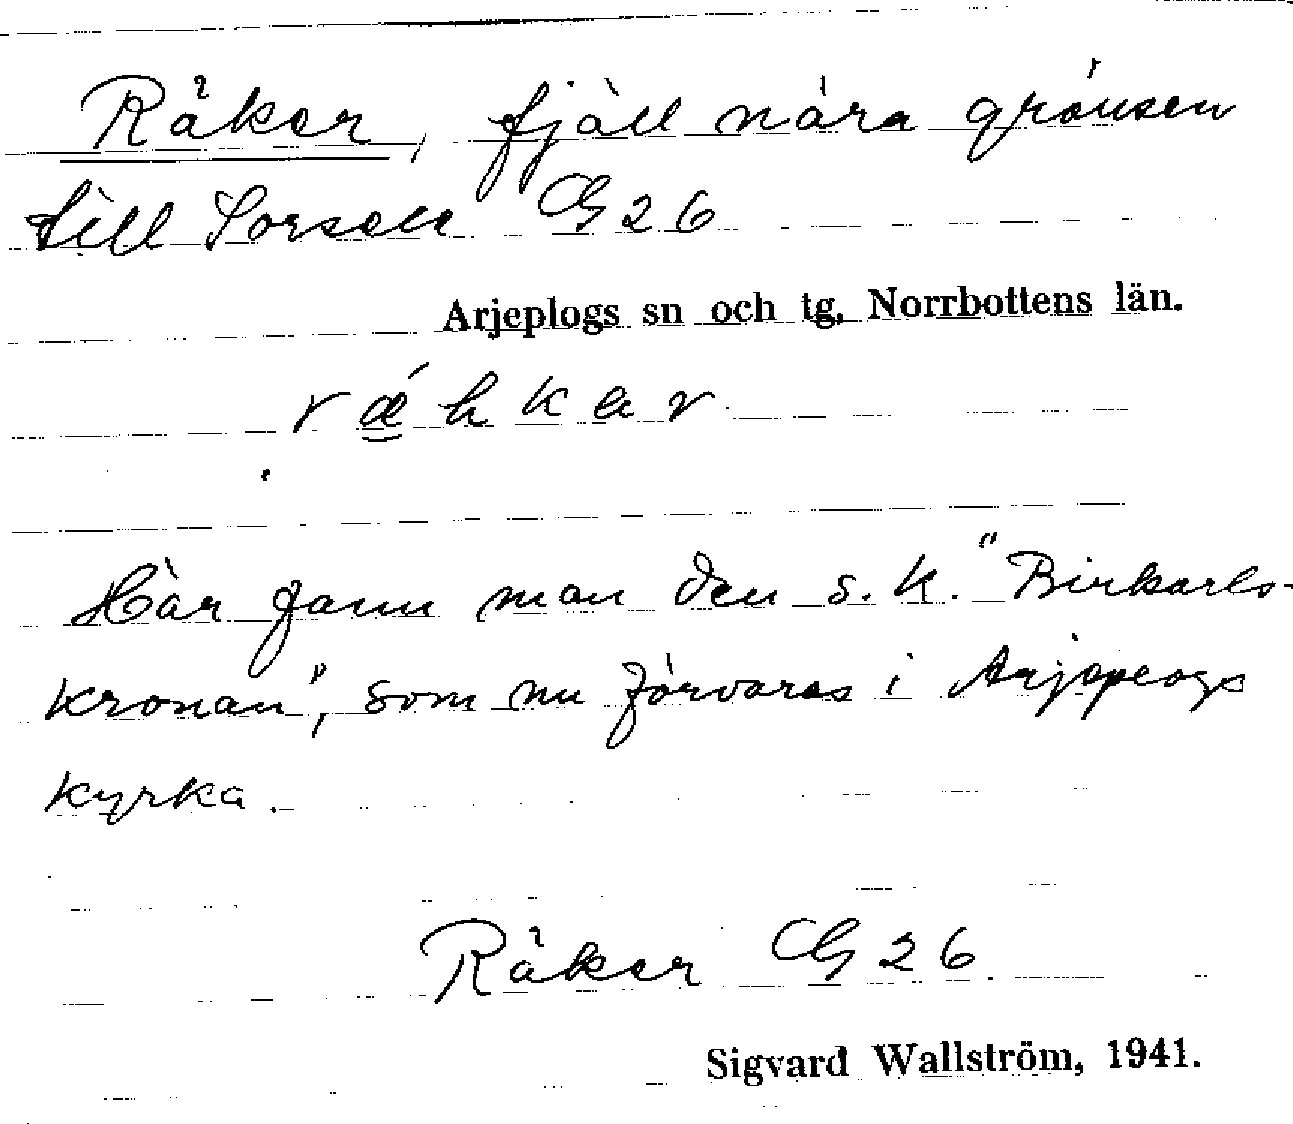 Räker, fjäll nära gränsen
till Sorsele G 26
Arjeplogs sn och tg, Norrbottens län.
rǽhker
Här fann man den s. k. "Birkarls-
kronan", som nu förvaras i Arjeplogs
kyrka.
Räker G 26
Sigvard Wallström, 1941.